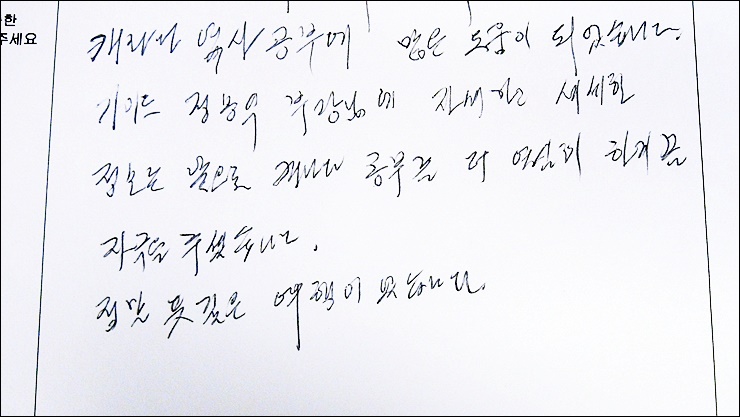 한
주세요
캐나다 역사 공부에 많은 도움이 되었습니다.
가이드 정 부장님에 자세하고 세세한
정보는 앞으로 캐나다 공부를 더 열심히 하게끔
자극을 주셨습니다.
정말 뜻깊은 여행이였습니다.